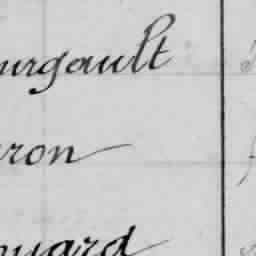 urgault
ron
ouard